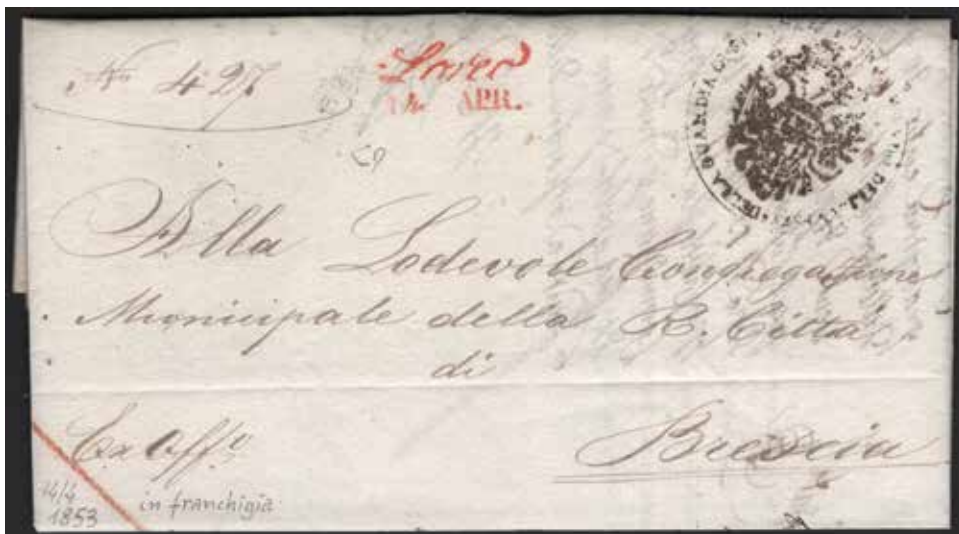 No 427
Lovere
14 APR.
DELLA GUARDIA
Alla Lodevole Congregazione
Municipale della R. Città
di
Ex Offo Brescia
14/4
1853 in franchigia